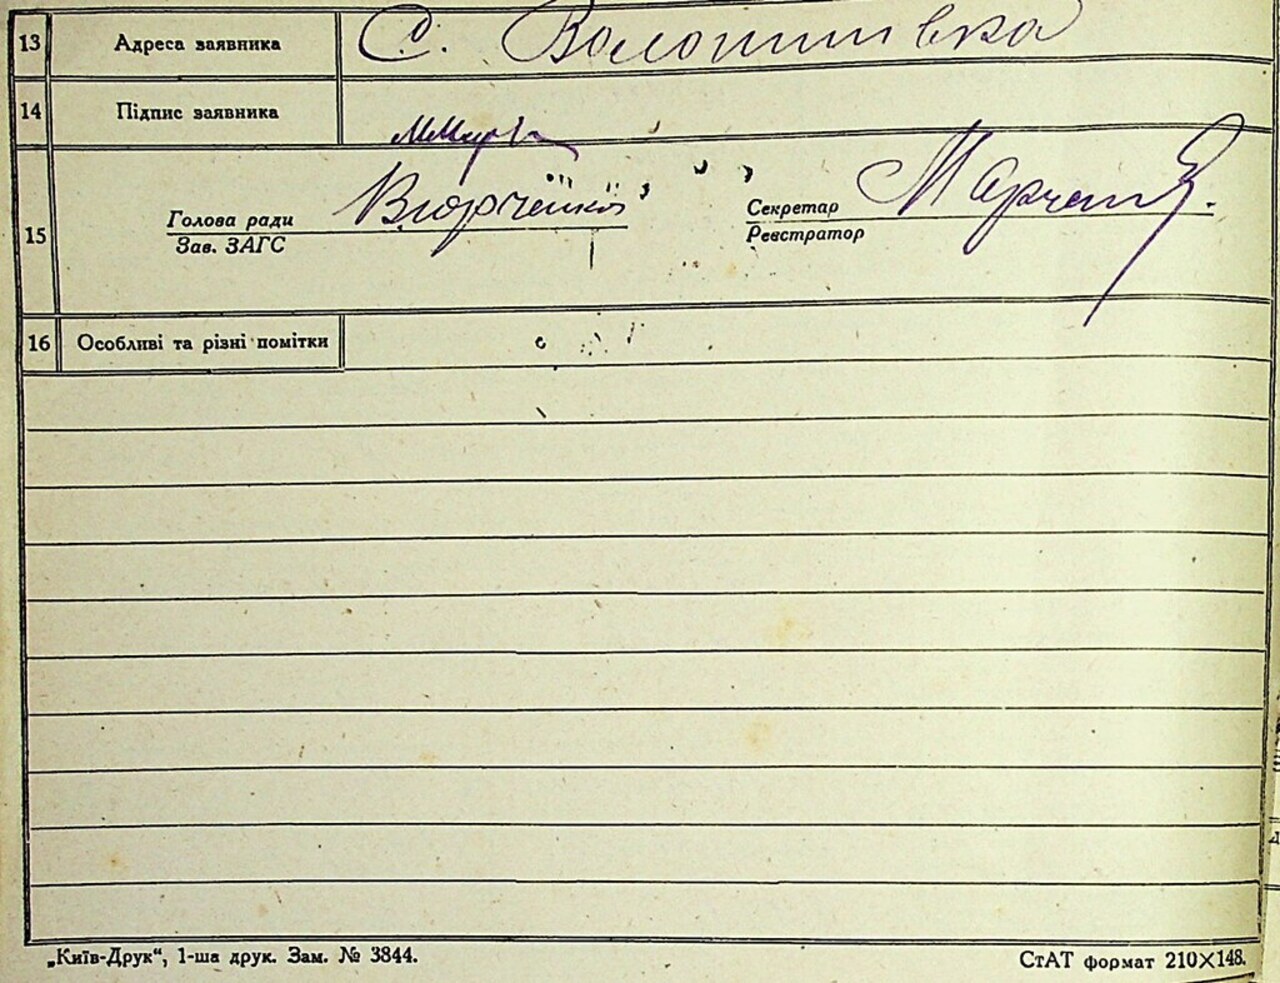 13 Адреса заявника С. Волошинівка
14 Підпис заявника
15 Голова ради Секретар
Зав. ЗАГС Реєстратор
16 Особливі та різні помітки
„Київ-Друк“, 1-ша друк. Зам. № 3844. СтАТ формат 210×148.